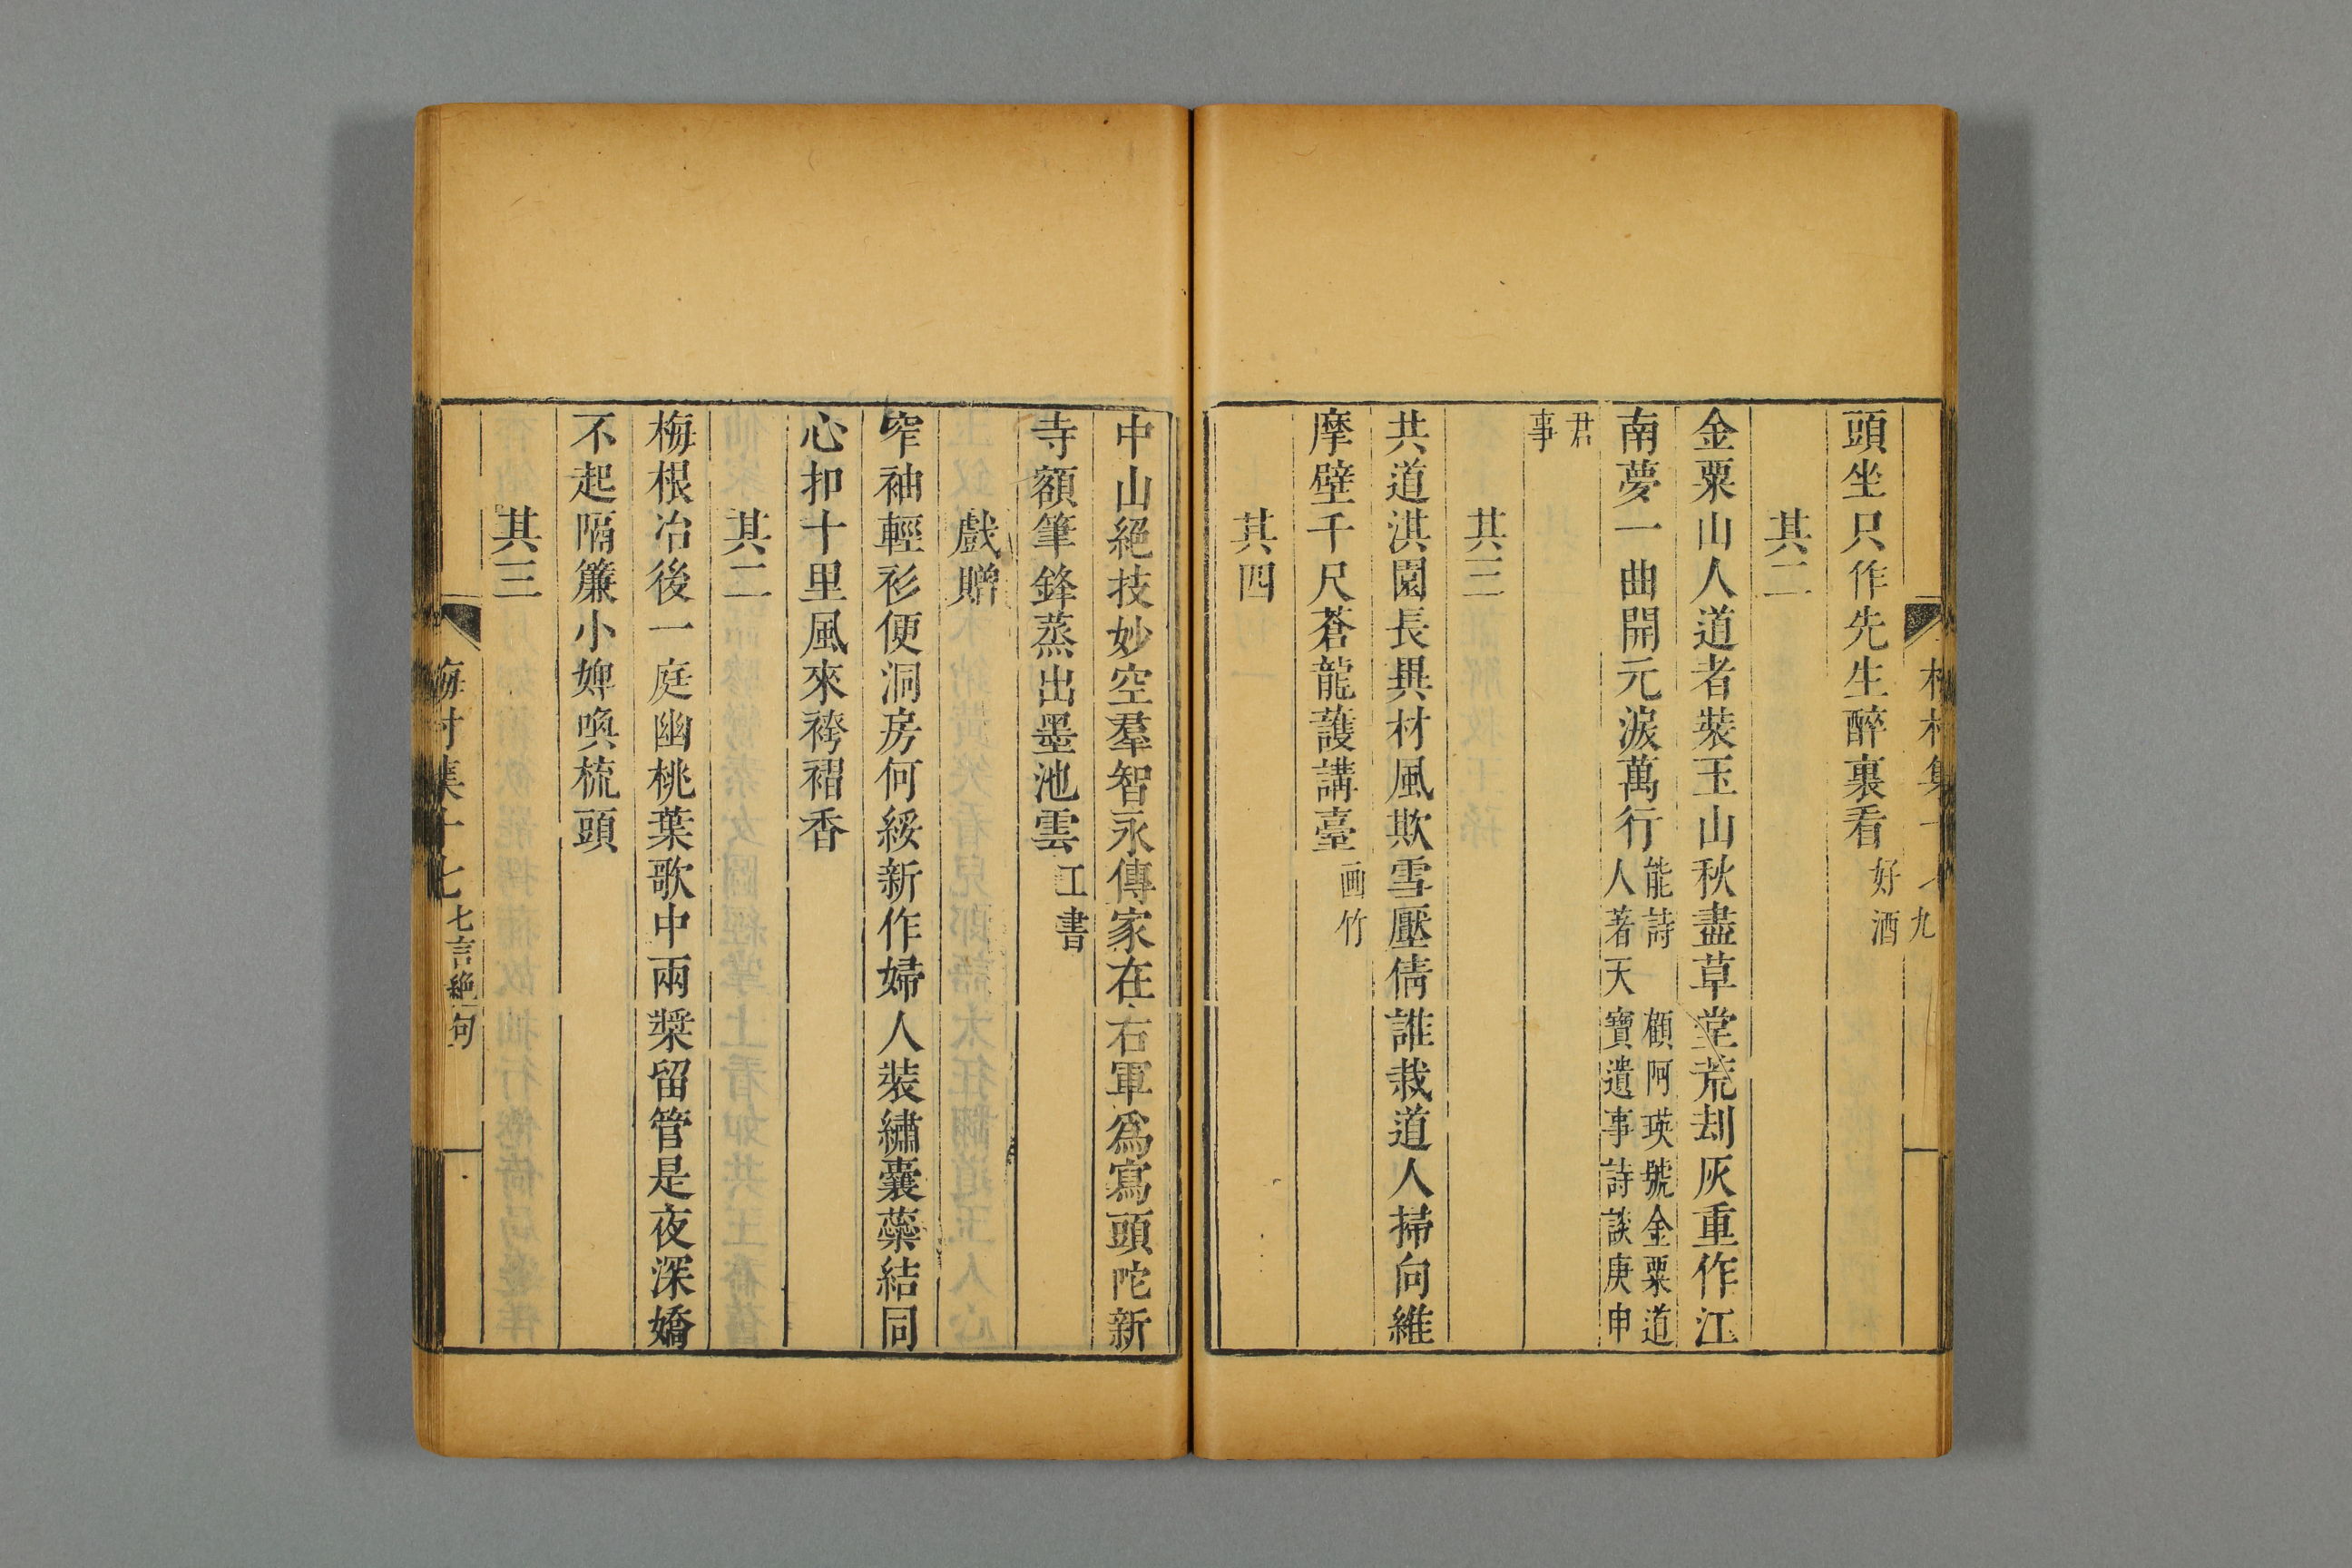 頭坐只作先生醉裏看好酒
其二
金粟山人道者裝玉山秋盡草堂荒刦灰重作江
南夢一曲開元淚萬行能詩 顧阿瑛號金粟道
人著天寶遺事詩談庚申
君
事
其三
共道淇園長異材風欺雪壓倩誰栽道人掃向維
摩壁千尺蒼龍護講臺画竹
其四
中山絕技妙空羣智永傳家在右軍爲寫頭陀新
寺額筆鋒蒸出墨池雲工書
戲贈
窄袖輕衫便洞房何綏新作婦人裝繡囊蘂結同
心扣十里風來袴褶香
其二
梅根冶後一庭幽桃葉歌中兩槳留管是夜深嬌
不起隔簾小婢喚梳頭
其三
梅村集十七七言絶句